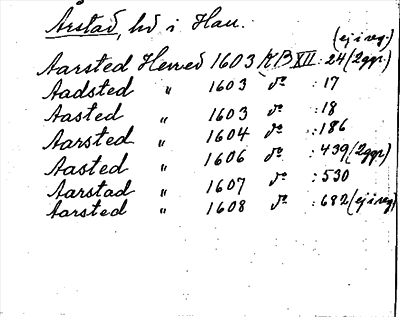 Årstad, hd i Hau.
(ej i reg.)
Aarsted Herred 1603 KB XII : 24 (2 ggr.)
Aadsted " 1603 do : 17
Aasted " 1603 do : 18
Aarsted " 1604 do : 186
Aasted " 1606 do : 439 (2 ggr.)
Aarstad " 1607 do : 530
Aarsted " 1608 do : 682 (ej i reg.)